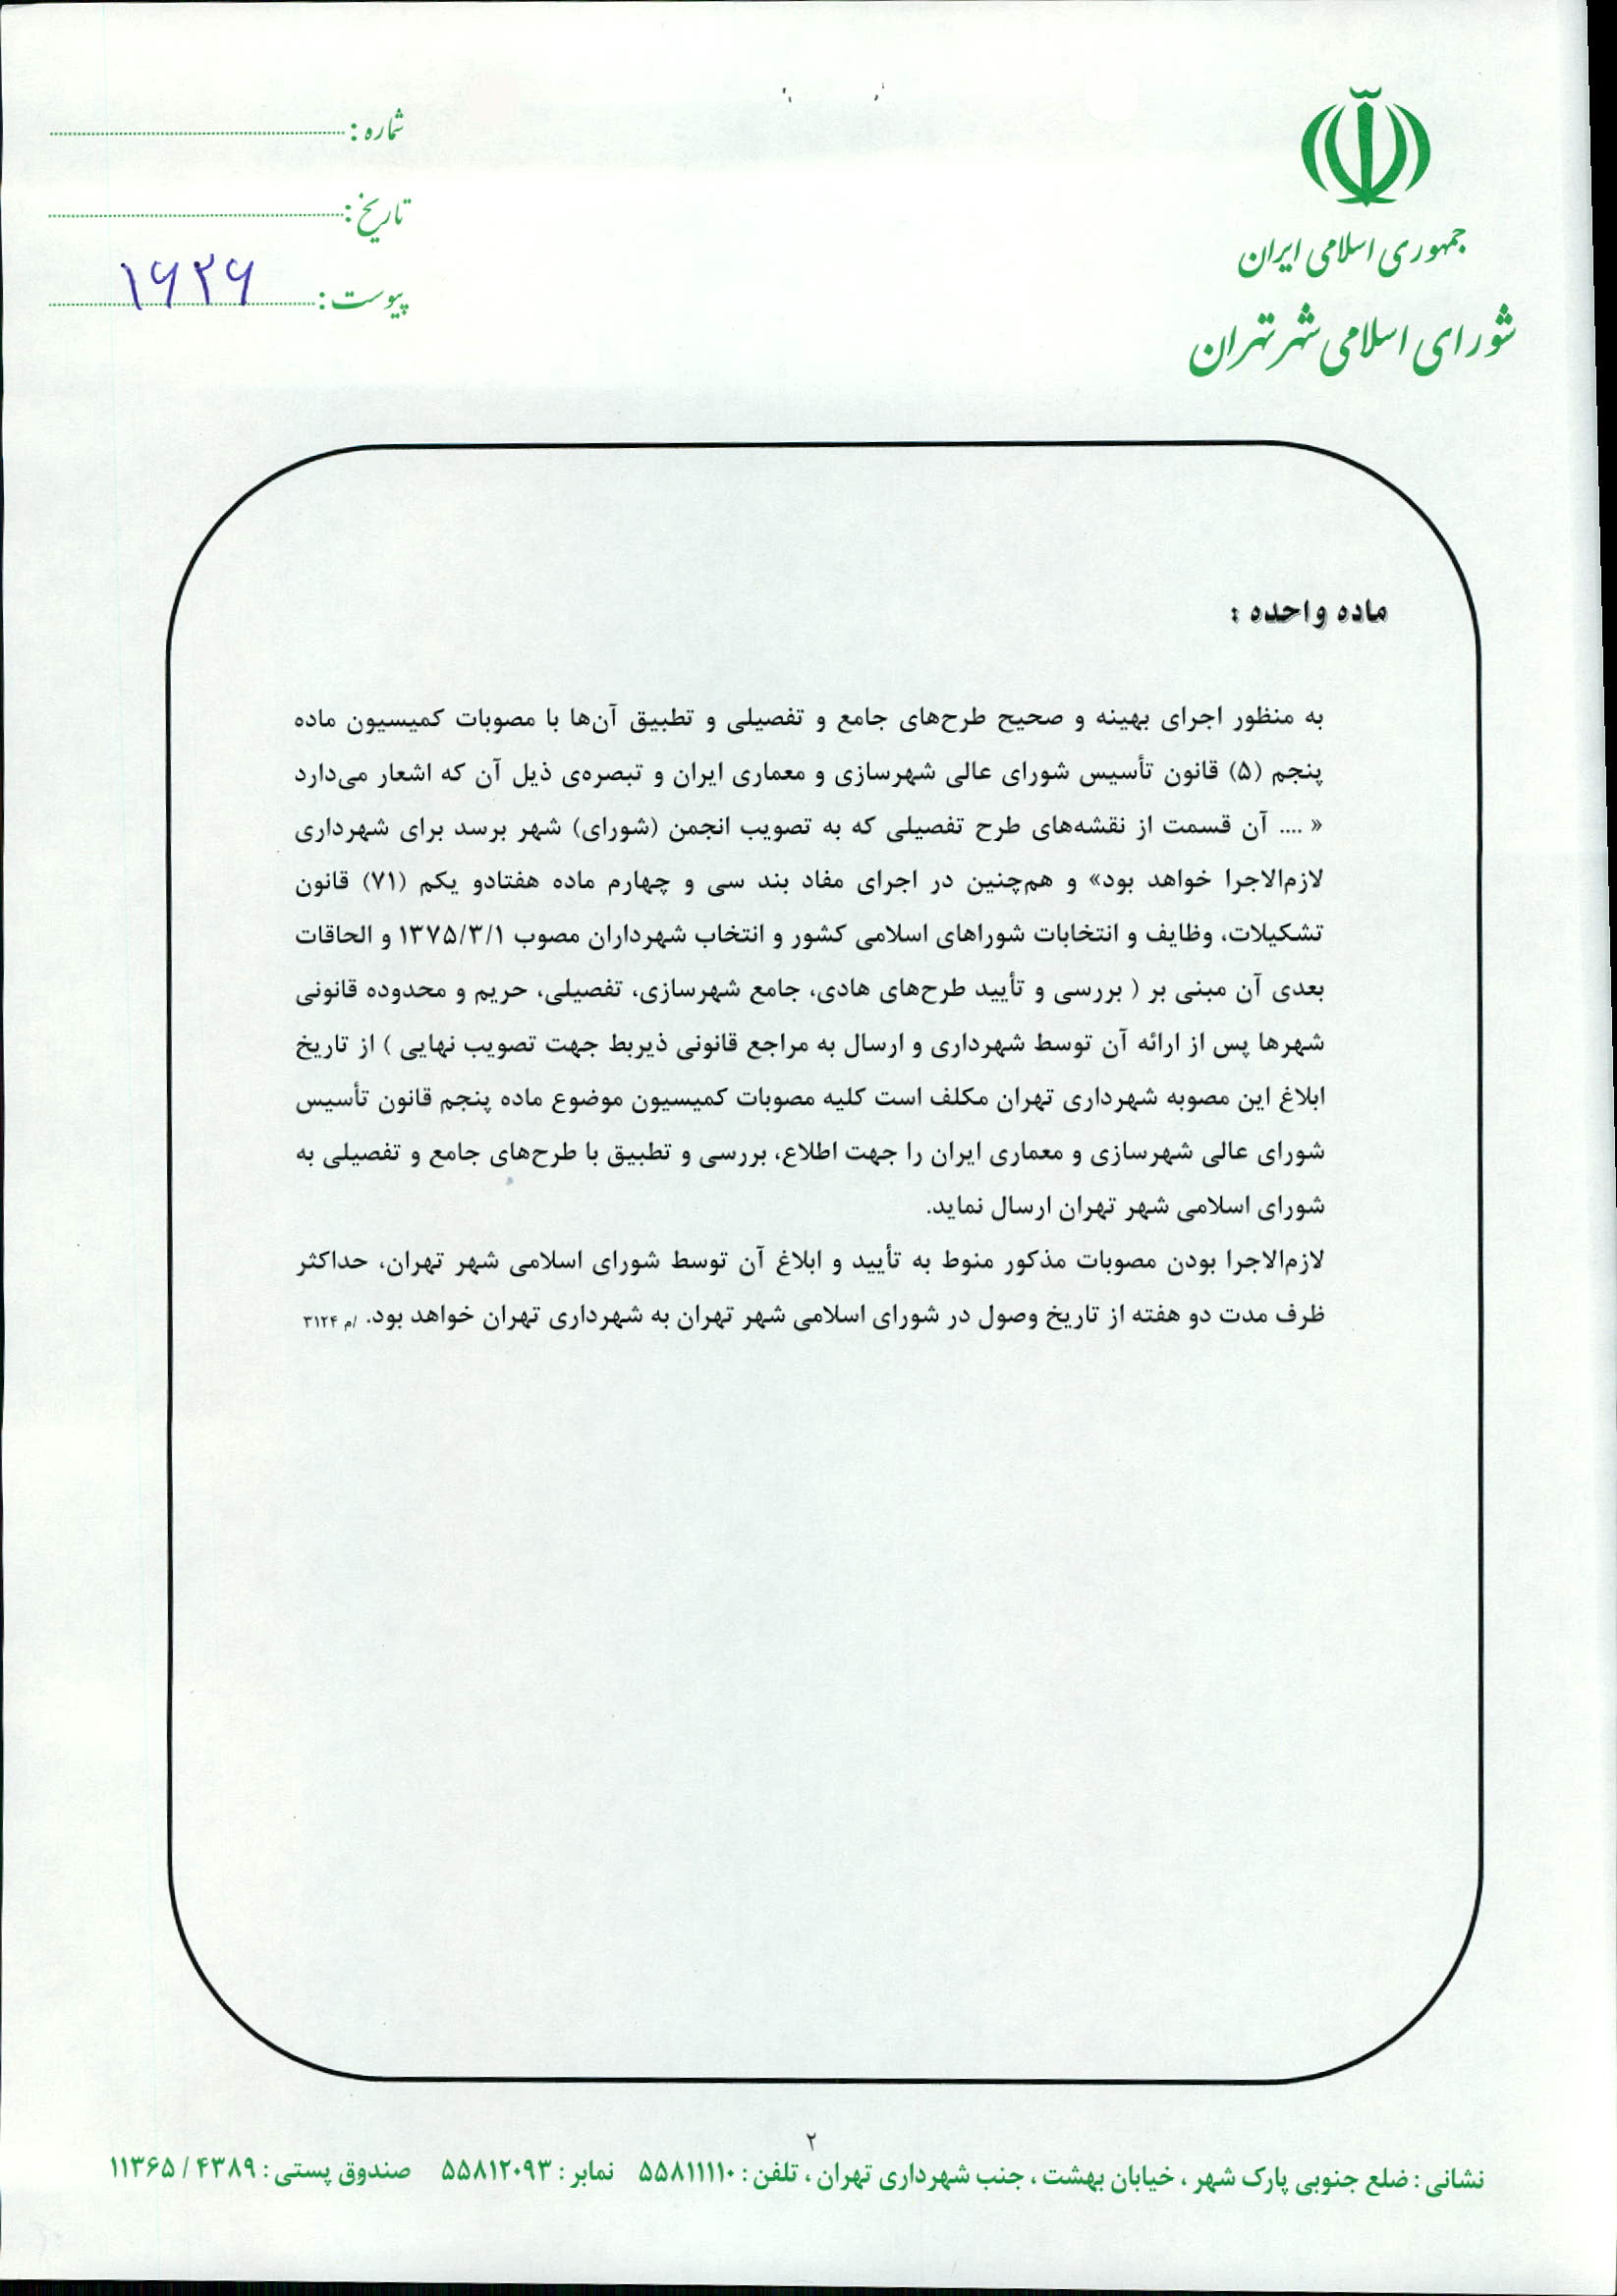 جمهوری اسلامی ایران
شورای اسلامی شهر تهران
شماره :
تاریخ :
پیوست : ۱۶۲۶
ماده واحده :
به منظور اجرای بهینه و صحیح طرح‌های جامع و تفصیلی و تطبیق آن‌ها با مصوبات کمیسیون ماده
پنجم (۵) قانون تأسیس شورای عالی شهرسازی و معماری ایران و تبصره‌ی ذیل آن که اشعار می‌دارد
« .... آن قسمت از نقشه‌های طرح تفصیلی که به تصویب انجمن (شورای) شهر برسد برای شهرداری
لازم‌الاجرا خواهد بود» و هم‌چنین در اجرای مفاد بند سی و چهارم ماده هفتادو یکم (۷۱) قانون
تشکیلات، وظایف و انتخابات شوراهای اسلامی کشور و انتخاب شهرداران مصوب ۱۳۷۵/۳/۱ و الحاقات
بعدی آن مبنی بر ( بررسی و تأیید طرح‌های هادی، جامع شهرسازی، تفصیلی، حریم و محدوده قانونی
شهرها پس از ارائه آن توسط شهرداری و ارسال به مراجع قانونی ذیربط جهت تصویب نهایی ) از تاریخ
ابلاغ این مصوبه شهرداری تهران مکلف است کلیه مصوبات کمیسیون موضوع ماده پنجم قانون تأسیس
شورای عالی شهرسازی و معماری ایران را جهت اطلاع، بررسی و تطبیق با طرح‌های جامع و تفصیلی به
شورای اسلامی شهر تهران ارسال نماید.
لازم‌الاجرا بودن مصوبات مذکور منوط به تأیید و ابلاغ آن توسط شورای اسلامی شهر تهران، حداکثر
ظرف مدت دو هفته از تاریخ وصول در شورای اسلامی شهر تهران به شهرداری تهران خواهد بود. /م ۳۱۲۴
۲
نشانی : ضلع جنوبی پارک شهر ، خیابان بهشت ، جنب شهرداری تهران ، تلفن : ۵۵۸۱۱۱۱۰ نمابر : ۵۵۸۱۲۰۹۳ صندوق پستی : ۴۳۸۹ / ۱۱۳۶۵